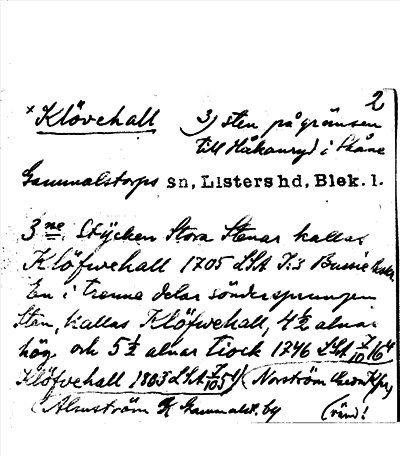 2
× Klövehall 3) sten på gränsen
till Håkanryd i Skåne
Gammalstorps sn, Listers hd, Blek. l.
3ne Stycken Stora Stenar kallas
Klöfwehall 1705 LSA
En i trenne delar söndersprungen
Sten, kallas Klöfwehall, 4½ alnar
hög och 5½ alnar tiock 1746 LSA
Klöfvehall 1803 LSA (Norström
(Almström K Gammalst. by (ränd!